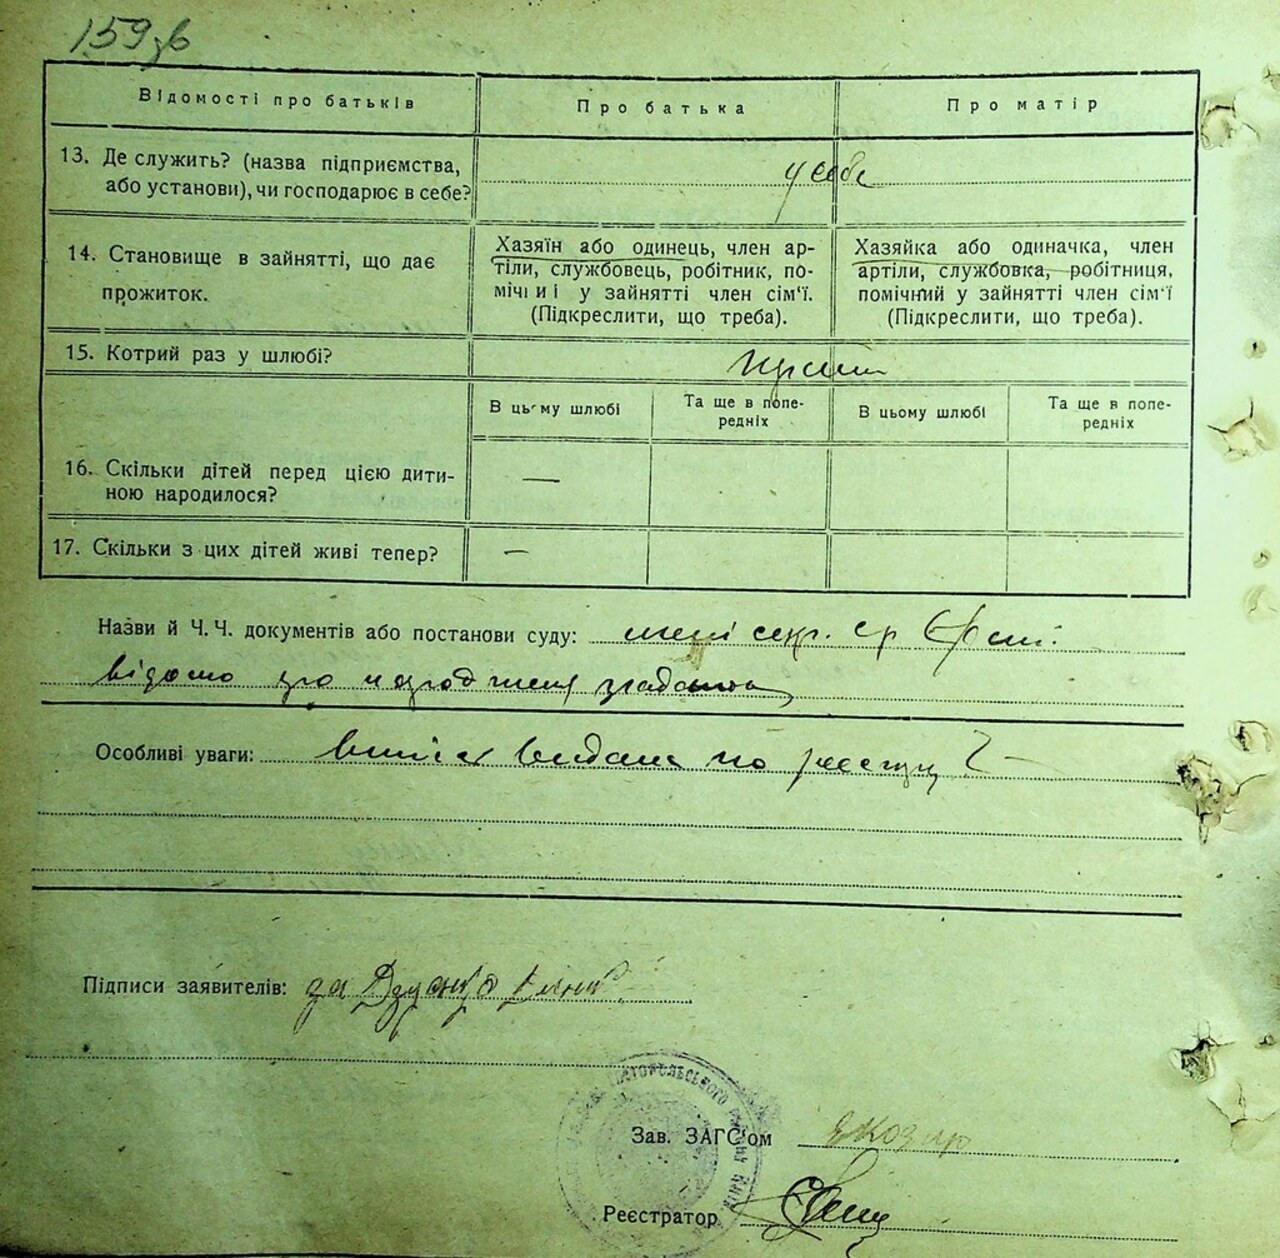 159зв
Відомості про батьків
Про батька
Про матір
13. Де служить? (назва підприємства,
або установи), чи господарює в себе?
у себе
14. Становище в зайнятті, що дає
прожиток.
Хазяїн або одинець, член ар-
тіли, службовець, робітник, по-
мічний у зайнятті член сім'ї.
(Підкреслити, що треба).
Хазяйка або одиначка, член
артіли, службовка, робітниця,
помічний у зайнятті член сім'ї
(Підкреслити, що треба).
15. Котрий раз у шлюбі?
В цьму шлюбі
Та ще в попе-
редніх
В цьому шлюбі
Та ще в попе-
редніх
16. Скільки дітей перед цією дити-
ною народилося?
—
17. Скільки з цих дітей живі тепер?
—
Назви й Ч. Ч. документів або постанови суду: мені секр.
відомо про народження
Особливі уваги: видана по реєстру
Підписи заявителів: за
Зав. ЗАГС'ом
Реєстратор